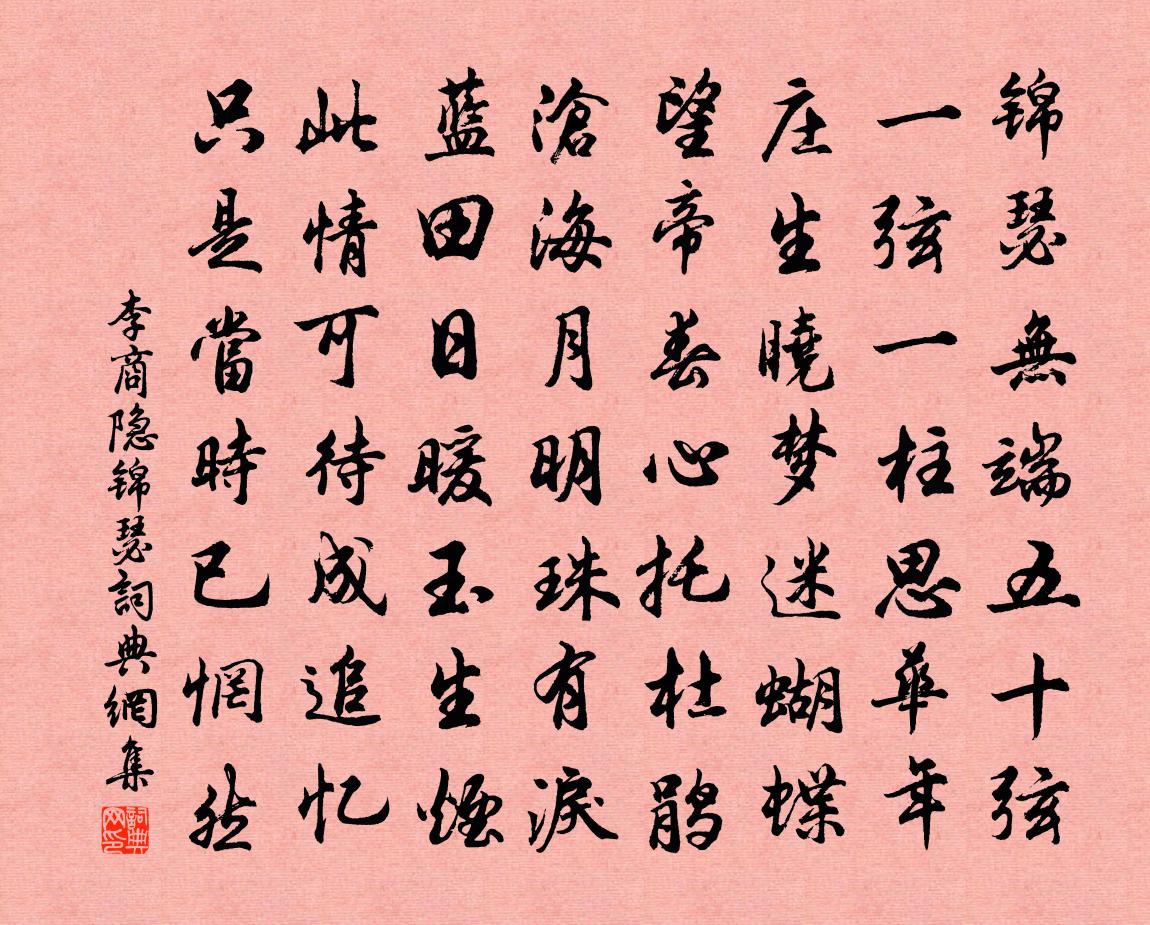 锦瑟無端五十弦
一弦一柱思華年
庄生曉梦迷蝴蝶
望帝春心托杜鹃
滄海月明珠有淚
藍田日暖玉生煙
此情可待成追忆
只是當時已惘然
李商隐锦瑟詞典網集
詞典网印